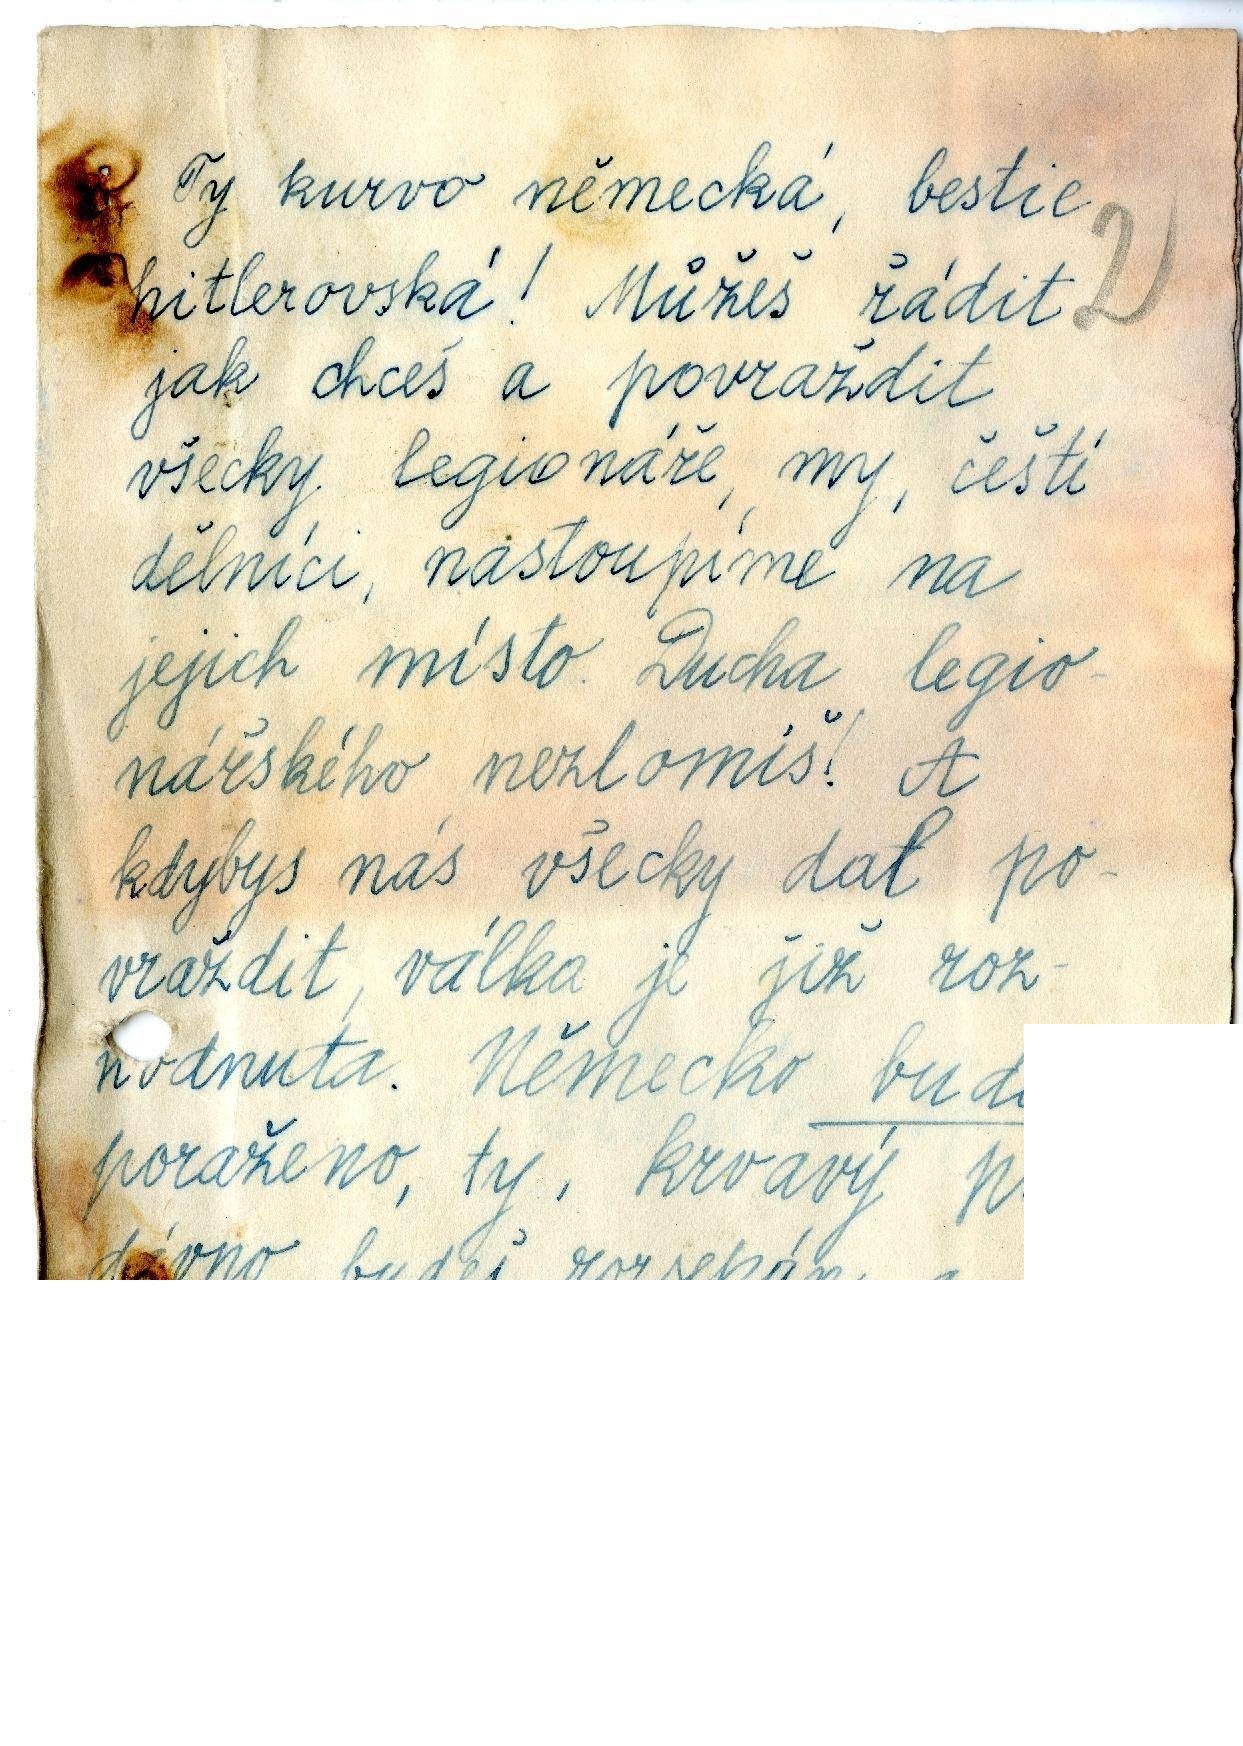 Ty kurvo německá, bestie
hitlerovská! Můžeš řádit
jak chceš a povraždit
všecky legionáře, my, čeští
dělníci, nastoupíme na
jejich místo. Ducha legio-
nářského nezlomíš! A
kdybys nás všecky dal po-
vraždit, válka je již roz-
hodnuta. Německo
poraženo, ty, krvavý
budeš
2)